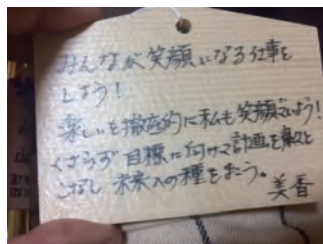 みんなが笑顔になる仕事を
しよう!
楽しいを徹底的に私も笑顔でいよう!
くさらず目標に向けて計画を粛々と
こなし未来への種をまこう。
美香